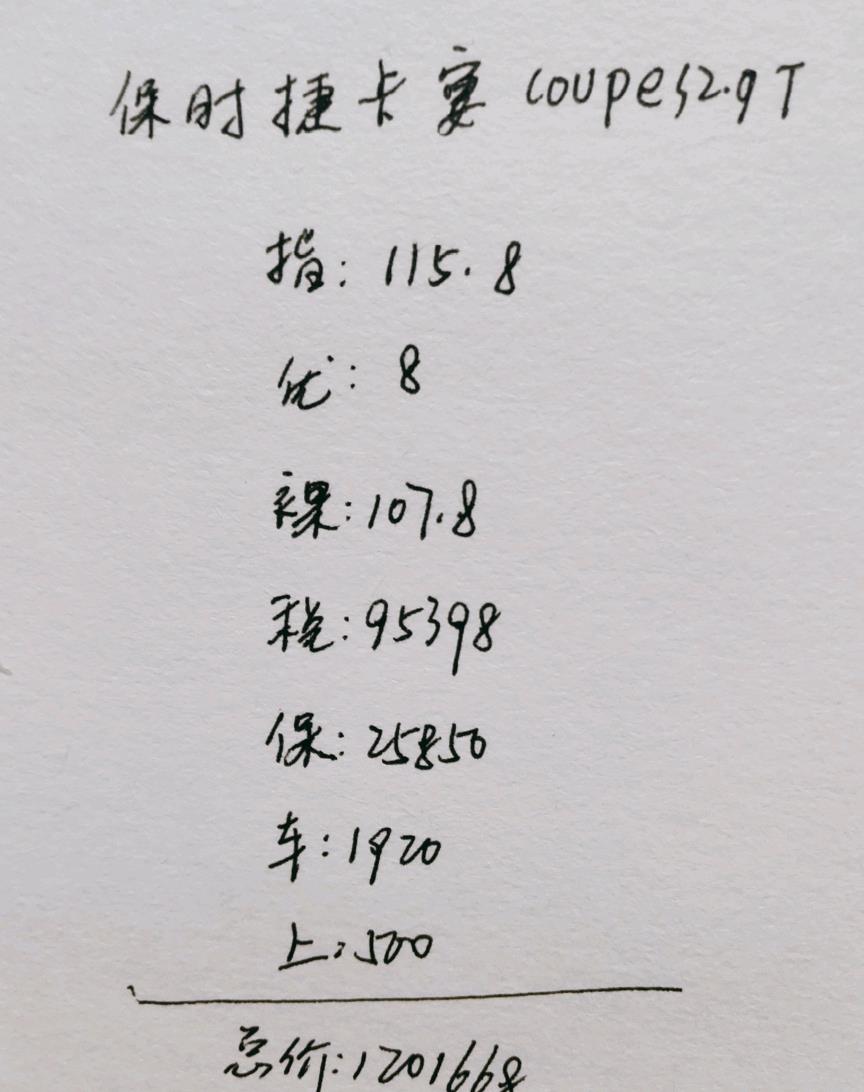 保时捷卡宴 coupes2.9T
指: 115.8
优: 8
裸: 107.8
税: 95398
保: 25850
车: 1920
上: 500
总价: 1201668